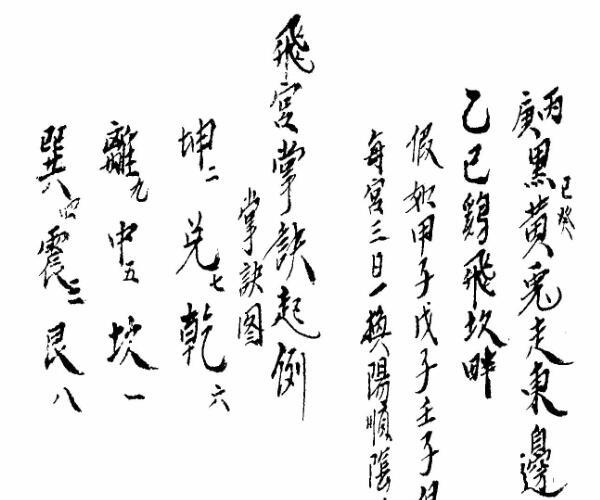 丙庚黑黄兎走東邊
己癸
乙巳鷄飛坎畔
假如甲子戊子壬子
每宮三日一換陽順陰
飛宮掌訣起例
掌訣图
坤二兑七乾六
離九中五坎一
巽四震三艮八